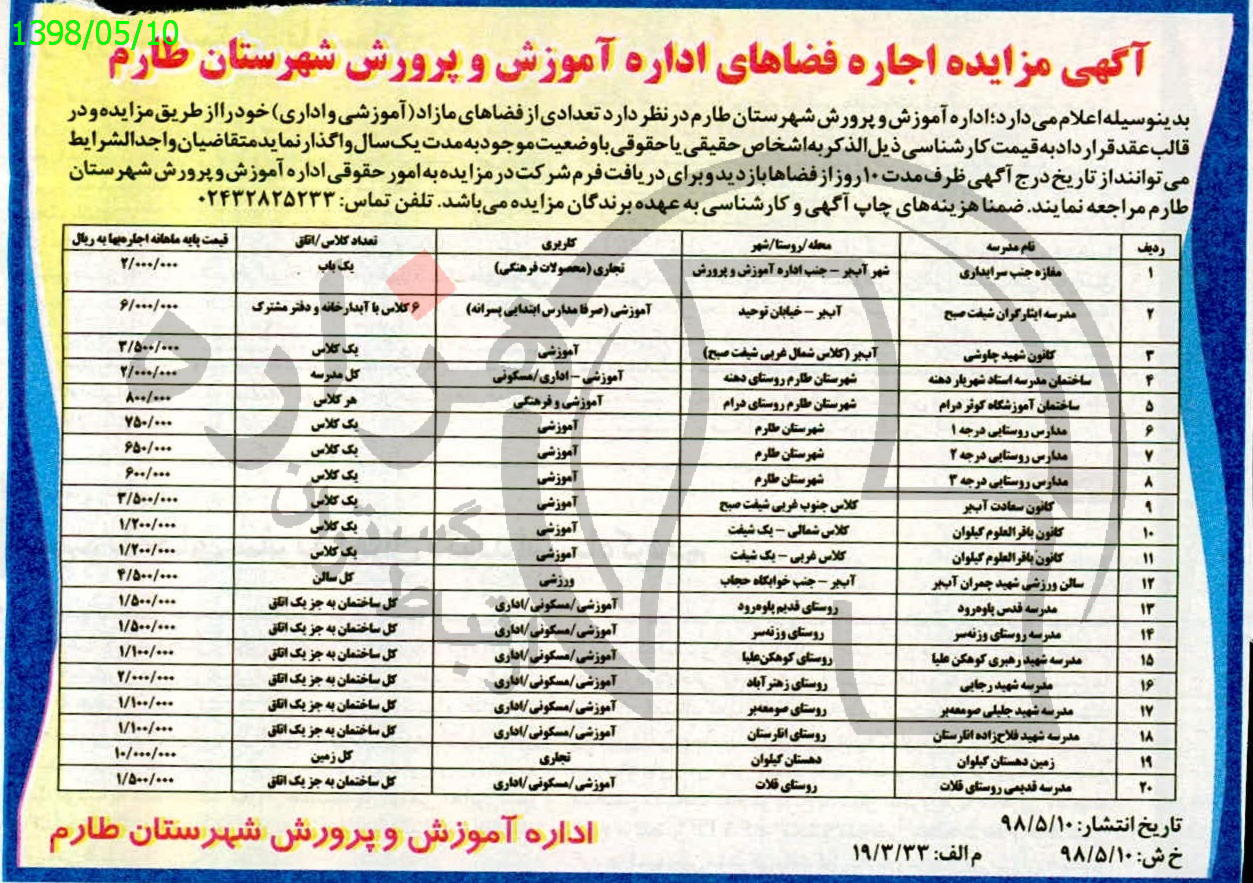 1398/05/10
آگهی مزایده اجاره فضاهای اداره آموزش و پرورش شهرستان طارم
بدینوسیله اعلام می‌دارد؛ اداره آموزش و پرورش شهرستان طارم در نظر دارد تعدادی از فضاهای مازاد (آموزشی و اداری) خود را از طریق مزایده و در
قالب عقد قرارداد به قیمت کارشناسی ذیل‌الذکر به اشخاص حقیقی یا حقوقی با وضعیت موجود به مدت یک سال واگذار نماید متقاضیان واجد الشرایط
می‌توانند از تاریخ درج آگهی ظرف مدت ۱۰ روز از فضاها بازدید و برای دریافت فرم شرکت در مزایده به امور حقوقی اداره آموزش و پرورش شهرستان
طارم مراجعه نمایند. ضمنا هزینه‌های چاپ آگهی و کارشناسی به عهده برندگان مزایده می‌باشد. تلفن تماس: ۰۲۴۳۲۸۲۵۲۳۳
ردیف نام مدرسه محله/روستا/شهر کاربری تعداد کلاس/اتاق قیمت پایه ماهانه اجاره‌بها به ریال
۱ مغازه جنب سرایداری شهر آب‌بر – جنب اداره آموزش و پرورش تجاری (محصولات فرهنگی) یک باب ۲/۰۰۰/۰۰۰
۲ مدرسه ایثارگران شیفت صبح آب‌بر – خیابان توحید آموزشی (صرفا مدارس ابتدایی پسرانه) ۶ کلاس با آبدارخانه و دفتر مشترک ۶/۰۰۰/۰۰۰
۳ کانون شهید چاوشی آب‌بر (کلاس شمال غربی شیفت صبح) آموزشی یک کلاس ۳/۵۰۰/۰۰۰
۴ ساختمان مدرسه استاد شهریار دهنه شهرستان طارم روستای دهنه آموزشی – اداری/مسکونی کل مدرسه ۲/۰۰۰/۰۰۰
۵ ساختمان آموزشگاه کوثر درام شهرستان طارم روستای درام آموزشی و فرهنگی هر کلاس ۸۰۰/۰۰۰
۶ مدارس روستایی درجه ۱ شهرستان طارم آموزشی یک کلاس ۷۵۰/۰۰۰
۷ مدارس روستایی درجه ۲ شهرستان طارم آموزشی یک کلاس ۶۵۰/۰۰۰
۸ مدارس روستایی درجه ۳ شهرستان طارم آموزشی یک کلاس ۶۰۰/۰۰۰
۹ کانون سعادت آب‌بر کلاس جنوب غربی شیفت صبح آموزشی یک کلاس ۳/۵۰۰/۰۰۰
۱۰ کانون باقرالعلوم گیلوان کلاس شمالی – یک شیفت آموزشی یک کلاس ۱/۲۰۰/۰۰۰
۱۱ کانون باقرالعلوم گیلوان کلاس غربی – یک شیفت آموزشی یک کلاس ۱/۲۰۰/۰۰۰
۱۲ سالن ورزشی شهید چمران آب‌بر آب‌بر – جنب خوابگاه حجاب ورزشی کل سالن ۴/۵۰۰/۰۰۰
۱۳ مدرسه قدس پاوه‌رود روستای قدیم پاوه‌رود آموزشی/مسکونی/اداری کل ساختمان به جز یک اتاق ۱/۵۰۰/۰۰۰
۱۴ مدرسه روستای وزنه‌سر روستای وزنه‌سر آموزشی/مسکونی/اداری کل ساختمان به جز یک اتاق ۱/۵۰۰/۰۰۰
۱۵ مدرسه شهید رهبری کوهکن علیا روستای کوهکن‌علیا آموزشی/مسکونی/اداری کل ساختمان به جز یک اتاق ۱/۱۰۰/۰۰۰
۱۶ مدرسه شهید رجایی روستای زهترآباد آموزشی/مسکونی/اداری کل ساختمان به جز یک اتاق ۲/۰۰۰/۰۰۰
۱۷ مدرسه شهید جلیلی صومعه‌بر روستای صومعه‌بر آموزشی/مسکونی/اداری کل ساختمان به جز یک اتاق ۱/۱۰۰/۰۰۰
۱۸ مدرسه شهید فلاح‌زاده انارستان روستای انارستان آموزشی/مسکونی/اداری کل ساختمان به جز یک اتاق ۱/۱۰۰/۰۰۰
۱۹ زمین دهستان گیلوان دهستان گیلوان تجاری کل زمین ۱۰/۰۰۰/۰۰۰
۲۰ مدرسه قدیمی روستای قلات روستای قلات آموزشی/مسکونی/اداری کل ساختمان به جز یک اتاق ۱/۵۰۰/۰۰۰
تاریخ انتشار: ۹۸/۵/۱۰
خ ش: ۹۸/۵/۱۰ م الف: ۱۹/۳/۳۳
اداره آموزش و پرورش شهرستان طارم